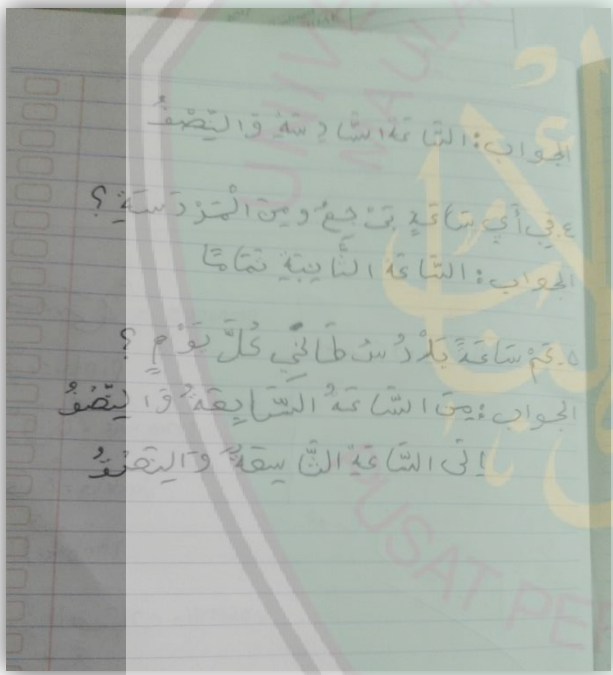 الجواب: السَّاعَةُ السَّادِسَةُ وَالنِّصْفُ
٤. فِي أَيِّ سَاعَةٍ يَرْجِعُ مِنَ الْمَدْرَسَةِ؟
الجواب: السَّاعَةُ الثَّانِيَةِ تَمَامًا
٥. كَمْ سَاعَةً يَدْرُسُ كُلَّ يَوْمٍ؟
الجواب: مِنَ السَّاعَةُ السَّابِعَةُ وَالنِّصْفُ
اِلَى السَّاعَةِ التَّاسِعَةُ وَالنِصْفُ
UNIV
MAULA
PUSAT PER